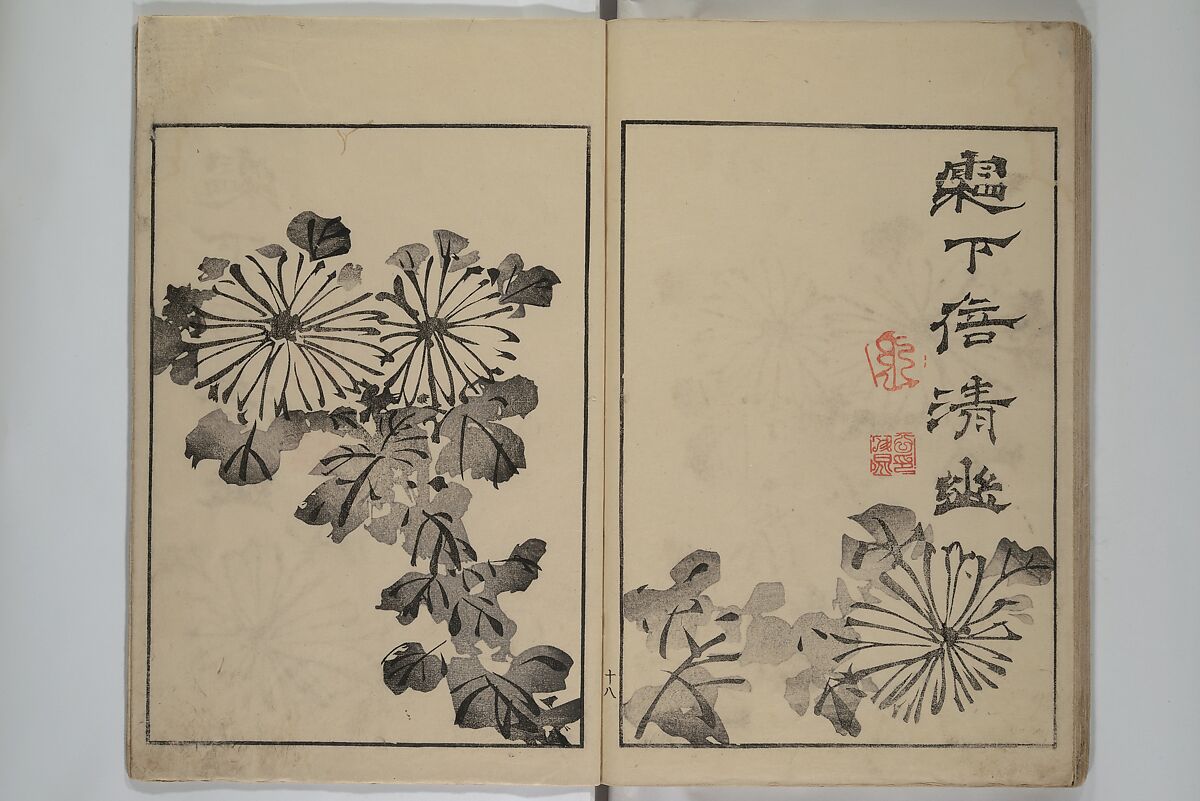 霜下倍清幽
十八